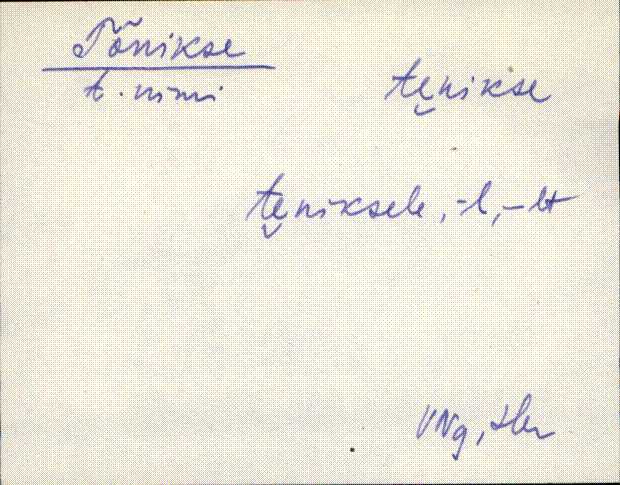 Tõnikse
t. nimi
te̮nikse
te̮niksele, -l, -lt
VNg,